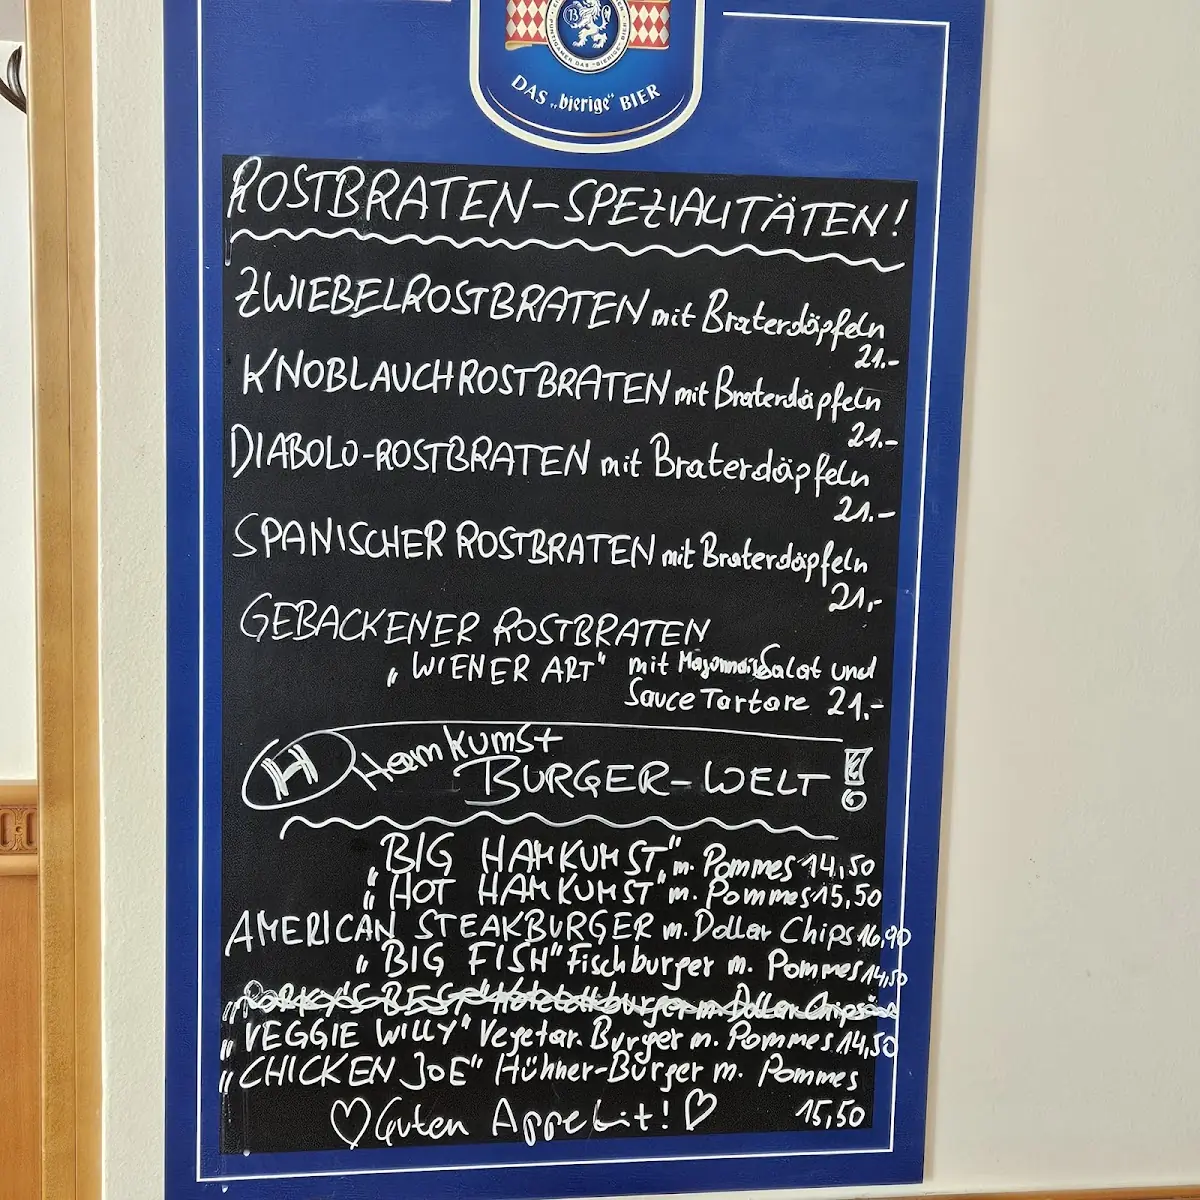 PUNTIGAMER DAS "BIERIGE" BIER
DAS „bierige" BIER
ROSTBRATEN-SPEZIALITÄTEN!
ZWIEBELROSTBRATEN mit Braterdäpfeln
21.-
KNOBLAUCHROSTBRATEN mit Braterdäpfeln
21.-
DIABOLO-ROSTBRATEN mit Braterdäpfeln
21.-
SPANISCHER ROSTBRATEN mit Braterdäpfeln
21,-
GEBACKENER ROSTBRATEN
„WIENER ART" mit Mayonnaise Salat und
Sauce Tartare 21.-
H Hamkumst
BURGER-WELT !
„BIG HAMKUMST" m. Pommes 14,50
„HOT HAMKUMST" m. Pommes 15,50
AMERICAN STEAKBURGER m. Dollar Chips 16,90
„BIG FISH" Fischburger m. Pommes 14,50
BEST" burger m. Dollar Chips
„VEGGIE WILLY" Vegetar. Burger m. Pommes 14,50
„CHICKEN JOE" Hühner-Burger m. Pommes
♡ Guten Appetit! ♡ 15,50